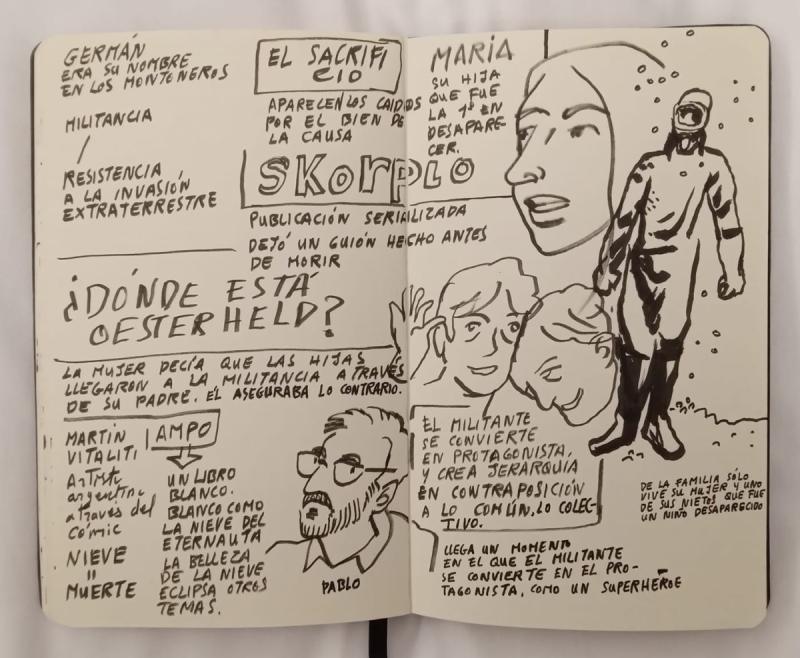 GERMÁN
ERA SU NOMBRE
EN LOS MONTONEROS
MILITANCIA
/
RESISTENCIA
A LA INVASIÓN
EXTRATERRESTRE
EL SACRIFI
CIO
APARECEN LOS CAIDOS
POR EL BIEN DE
LA CAUSA
SKORPIO
PUBLICACIÓN SERIALIZADA
DEJÓ UN GUIÓN HECHO ANTES
DE MORIR
¿DÓNDE ESTÁ
OESTERHELD?
LA MUJER DECÍA QUE LAS HIJAS
LLEGARON A LA MILITANCIA A TRAVÉS
DE SU PADRE. ÉL ASEGURABA LO CONTRARIO.
MARTÍN
VITALITI
Artista
argentino
a través del
cómic
NIEVE
=
MUERTE
AMPO
UN LIBRO
BLANCO.
BLANCO COMO
LA NIEVE DEL
ETERNAUTA
LA BELLEZA
DE LA NIEVE
ECLIPSA OTROS
TEMAS.
PABLO
MARÍA
SU HIJA
QUE FUE
LA 1ª EN
DESAPARE-
CER.
EL MILITANTE
SE CONVIERTE
EN PROTAGONISTA,
Y CREA JERARQUÍA
EN CONTRAPOSICIÓN
A LO COMÚN, LO COLEC-
TIVO.
DE LA FAMILIA SÓLO
VIVE SU MUJER Y UNO
DE SUS NIETOS QUE FUE
UN NIÑO DESAPARECIDO
LLEGA UN MOMENTO
EN EL QUE EL MILITANTE
SE CONVIERTE EN EL PRO-
TAGONISTA, COMO UN SUPERHÉROE